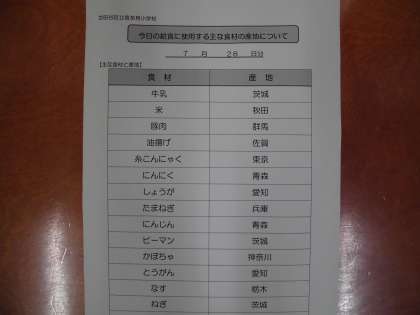 今日の給食に使用する主な食材の産地について
7 月 28 日分
【主な食材と産地】
食材 産地
牛乳 茨城
米 秋田
豚肉 群馬
油揚げ 佐賀
糸こんにゃく 東京
にんにく 青森
しょうが 愛知
たまねぎ 兵庫
にんじん 青森
ピーマン 茨城
かぼちゃ 神奈川
とうがん 愛知
なす 栃木
ねぎ 茨城